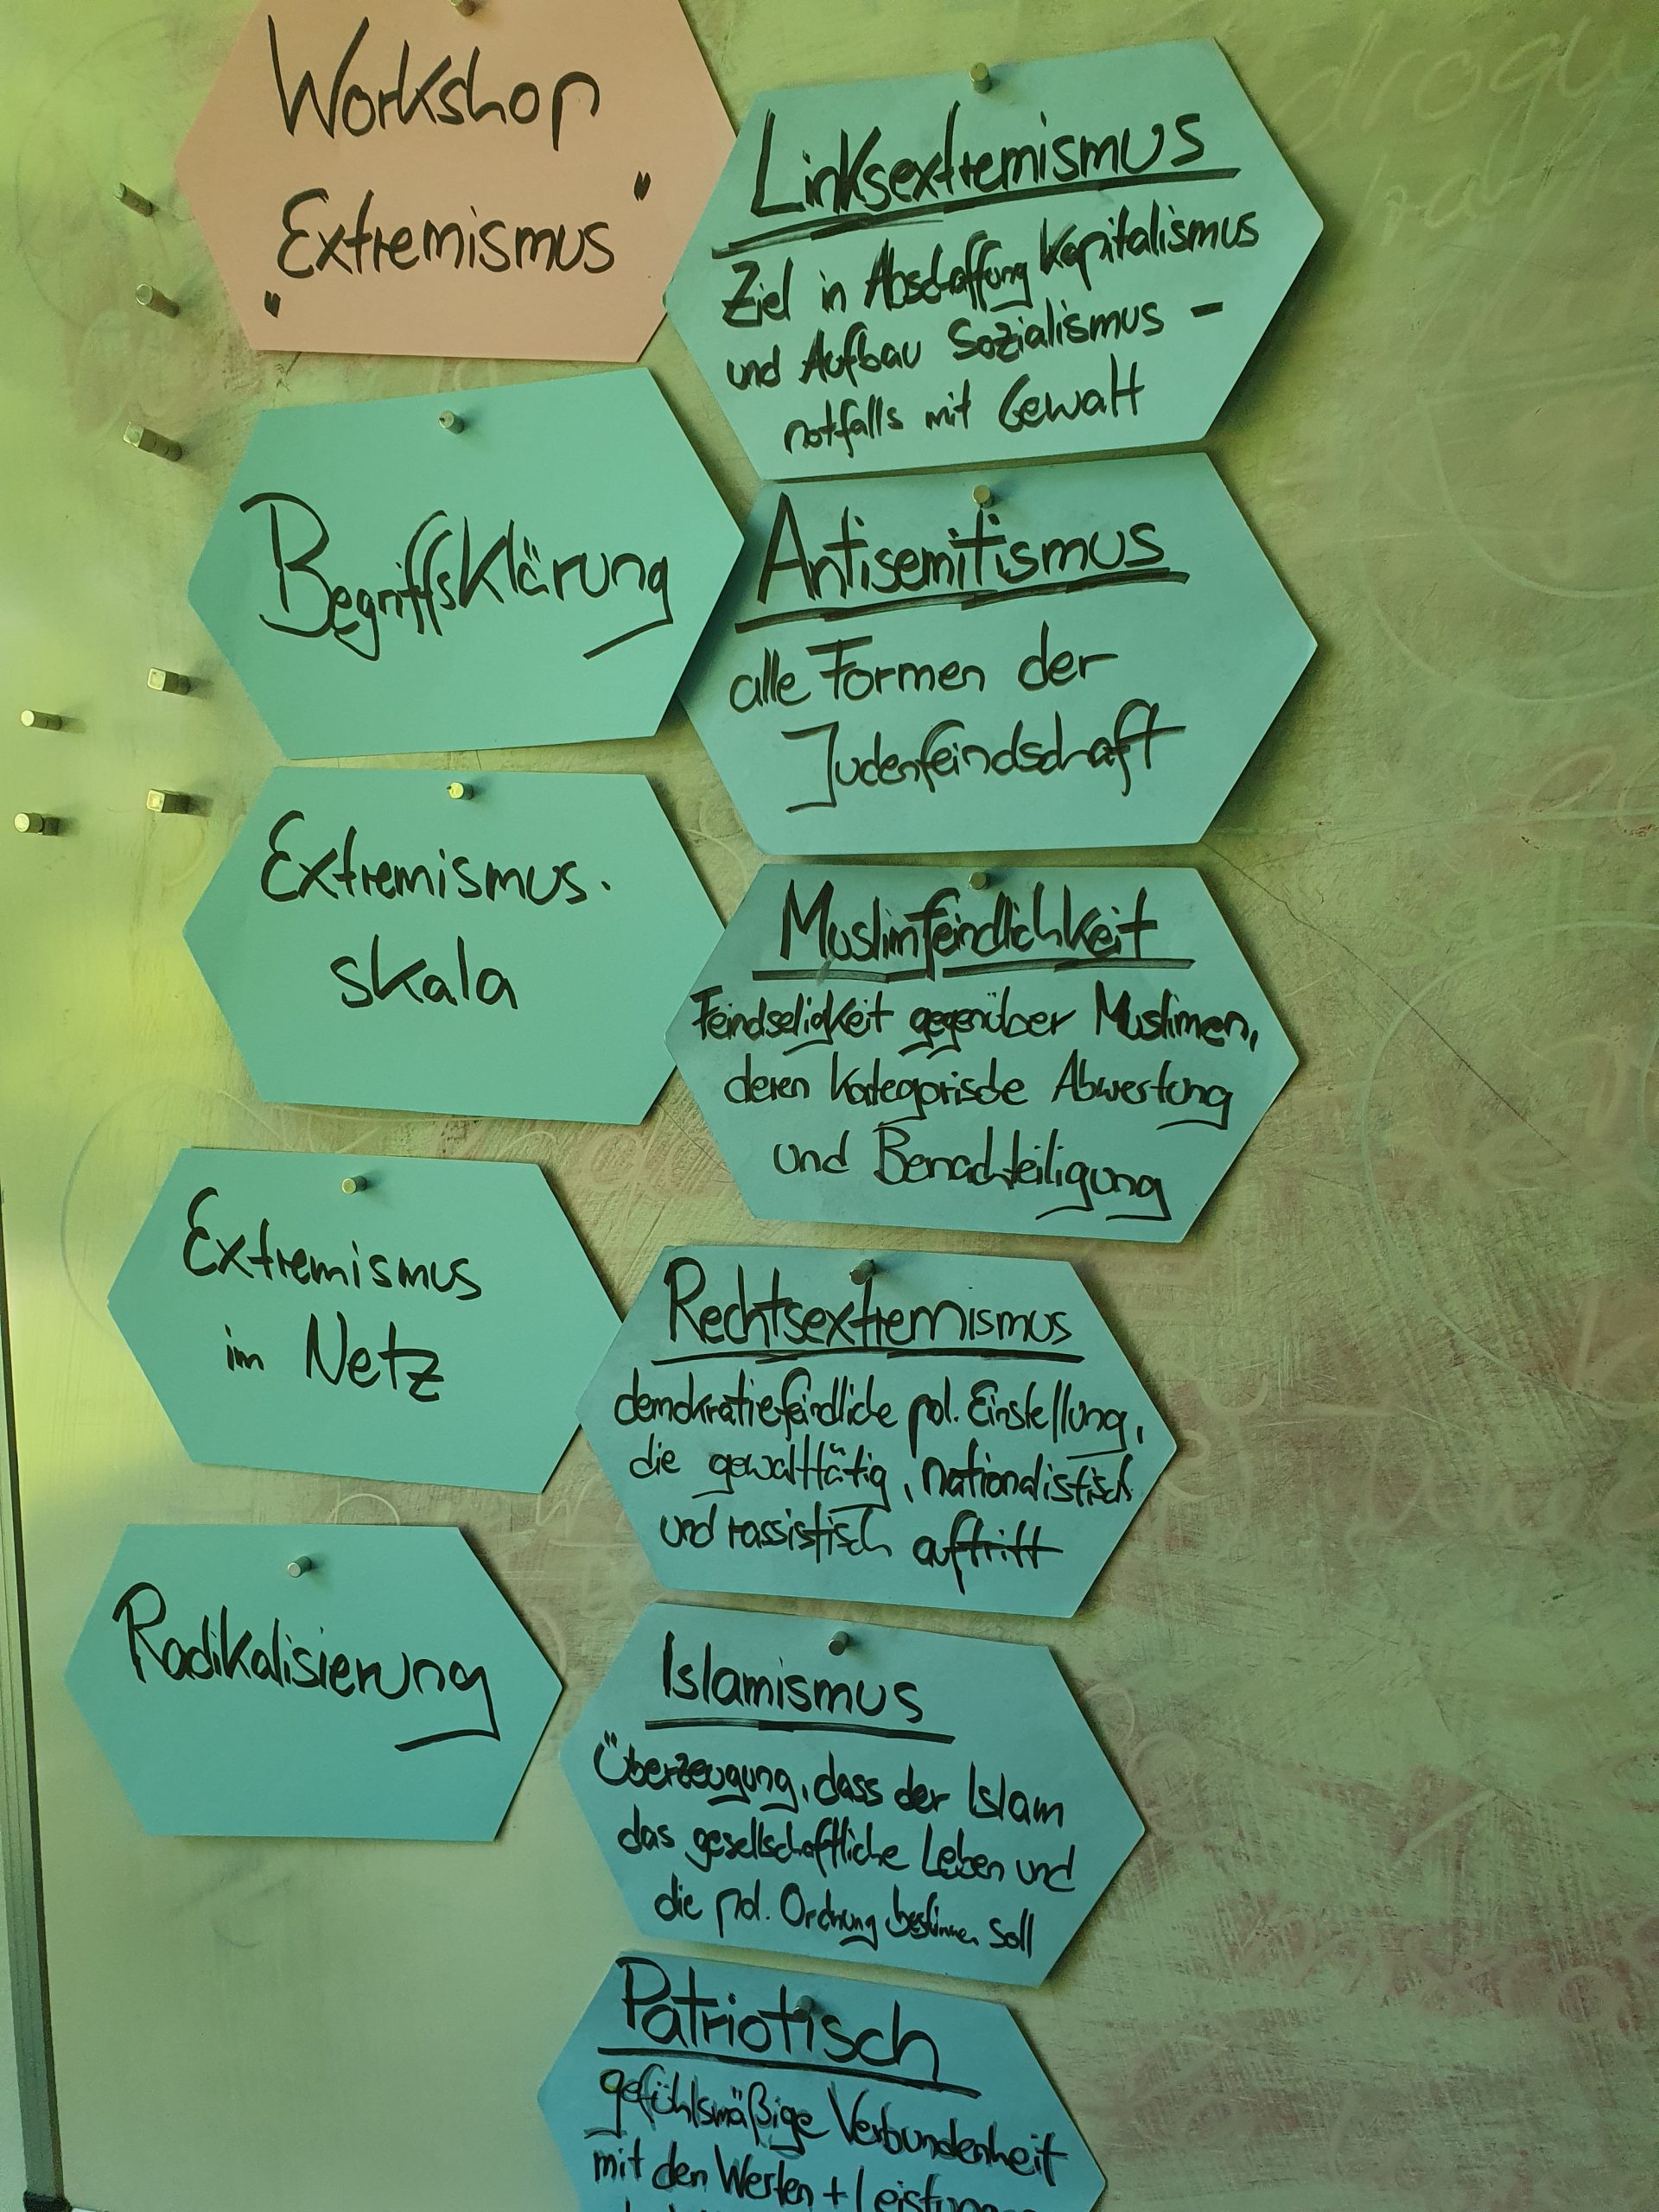 Workshop
"Extremismus"
Begriffsklärung
Extremismus-
skala
Extremismus
im Netz
Radikalisierung
Linksextremismus
Ziel in Abschaffung Kapitalismus
und Aufbau Sozialismus -
notfalls mit Gewalt
Antisemitismus
alle Formen der
Judenfeindschaft
Muslimfeindlichkeit
Feindseligkeit gegenüber Muslimen,
deren kategorische Abwertung
und Benachteiligung
Rechtsextremismus
demokratiefeindliche pol. Einstellung,
die gewalttätig, nationalistisch
und rassistisch auftritt
Islamismus
Überzeugung, dass der Islam
das gesellschaftliche Leben und
die pol. Ordnung bestimmen soll
Patriotisch
gefühlsmäßige Verbundenheit
mit den Werten +